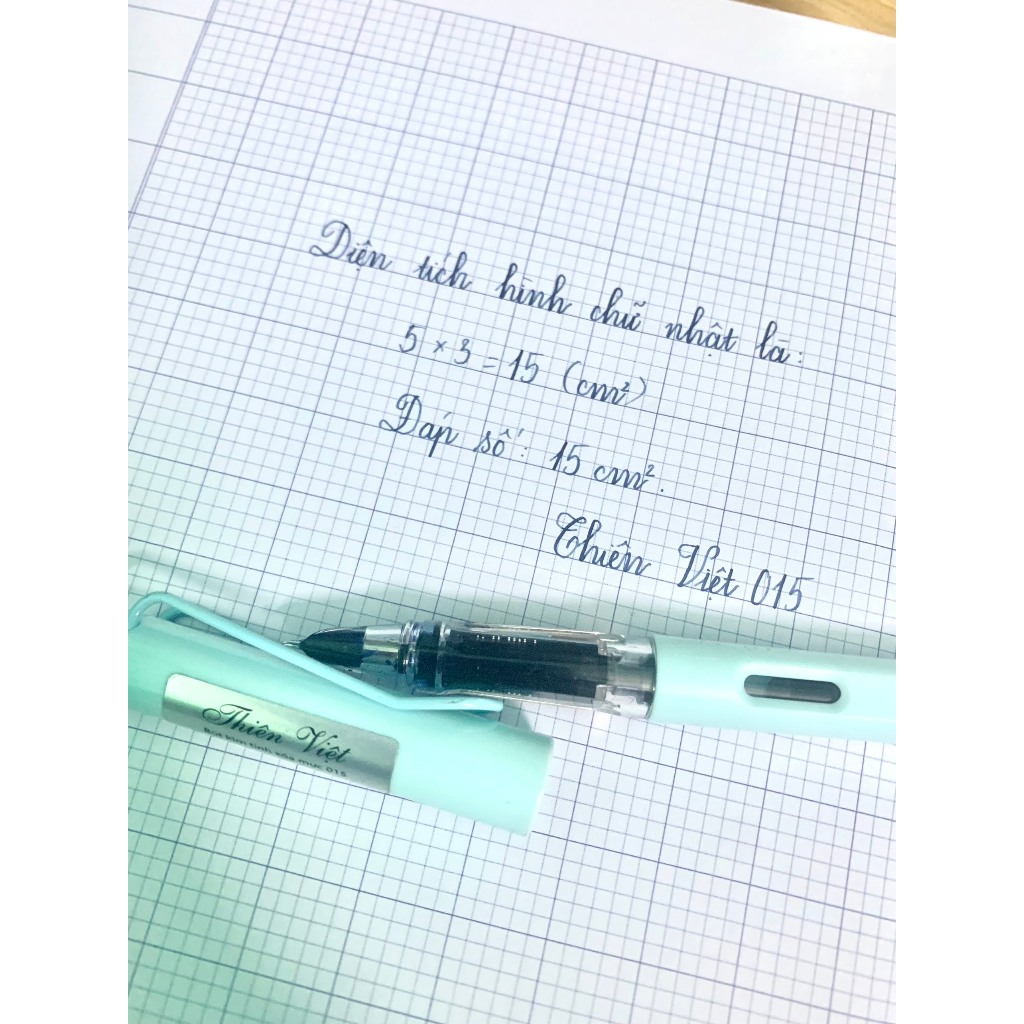 Diện tích hình chữ nhật là:
5 × 3 = 15 (cm²)
Đáp số: 15 cm².
Thiên Việt 015
Thiên Việt
Bút kim tinh xóa mực 015